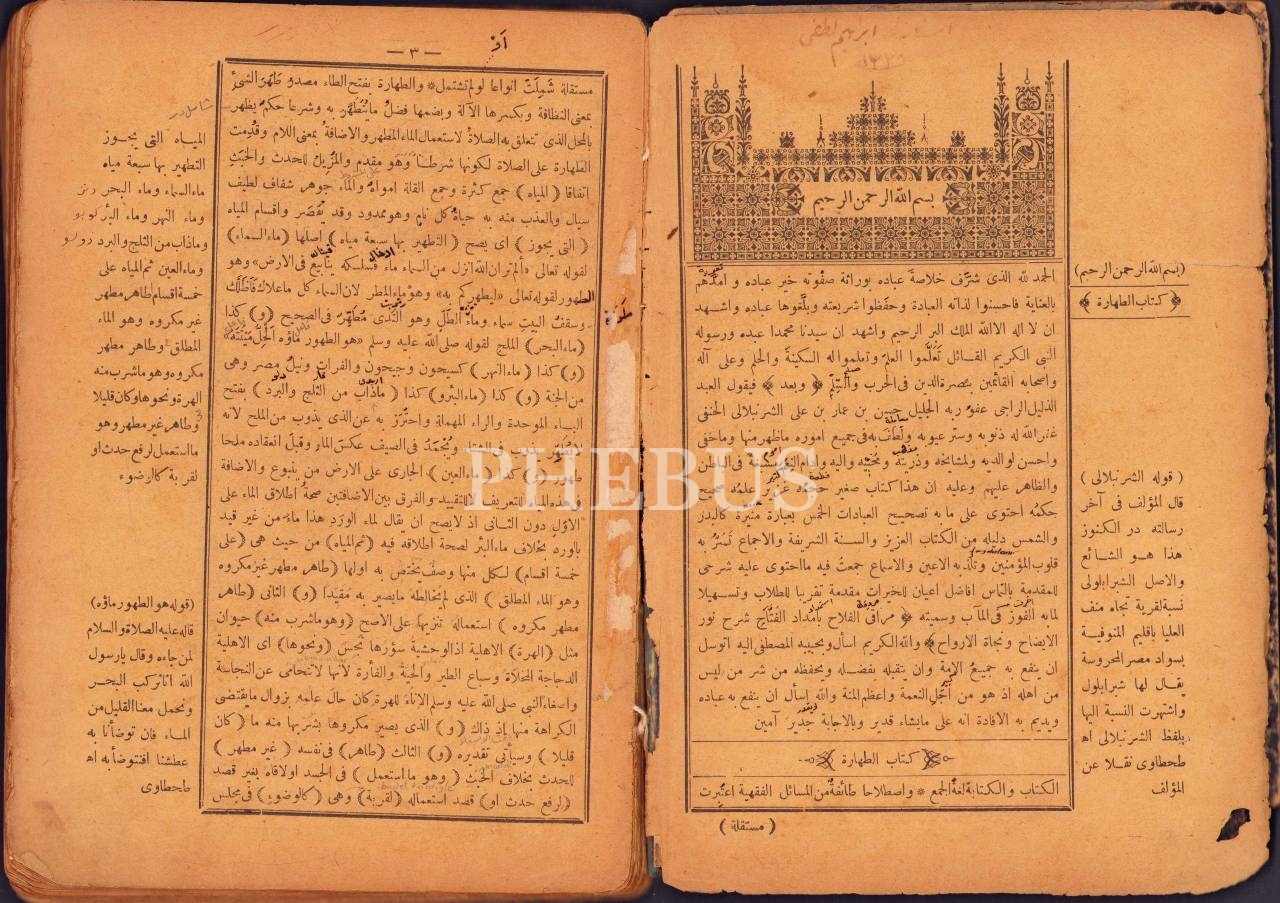 ابراهيم لطفى
بسم الله الرحمن الرحيم
الحمد لله الذى شرّف خلاصة عباده بوراثة صفوته خير عباده و امدّهم
بالعناية فاحسنوا لذاته العبادة وحفظوا شريعته وبلّغوها عباده واشهد
ان لا اله الا الله الملك البر الرحيم واشهد ان سيدنا محمدا عبده ورسوله
النبى الكريم القائل تعلّموا العلم وتعلموا له السكينة والحلم وعلى آله
واصحابه القائمين بنصرة الدين فى الحرب والسّلم ﴿ وبعد ﴾ فيقول العبد
الذليل الراجى عفو ربه الجليل حسن بن عمار بن على الشرنبلالى الحنفى
غفر الله له ذنوبه وستر عيوبه ولطف به فى جميع اموره ماظهر منها وماخفى
واحسن لوالديه ولمشايخه وذريته ومحبّيه واليه وادام النعم مسبغة فى الباطن
والظاهر عليهم وعليه ان هذا كتاب صغير حجمه غزير علمه صحيح
حكمه احتوى على مابه تصحيح العبادات الخمس بعبارة منيرة كالبدر
والشمس دليله من الكتاب العزيز والسنة الشريفة والاجماع تسرّ به
قلوب المؤمنين وتلذّ به الاعين والاسماع جمعت فيه مااحتوى عليه شرحى
للمقدمة بالتماس افاضل اعيان للخيرات مقدمة تقريبا للطلاب وتسهيلا
لمابه الفوز فى المآب وسميته ﴿ مراقى الفلاح بامداد الفتاح شرح نور
الايضاح ونجاة الارواح ﴾ والله الكريم اسأل وبحبيبه المصطفى اليه اتوسل
ان ينفع به جميع الامة وان يتقبله بفضله ويحفظه من شر من ليس
من اهله اذ هو من اجلّ النعمة واعظم المنة والله اسأل ان ينفع به عباده
ويديم به الافادة انه على مايشاء قدير وبالاجابة جدير آمين
كتاب الطهارة
الكتاب والكتابة لغة الجمع * واصطلاحا طائفة من المسائل الفقهية اعتبرت
( مستقلة )
(بسم الله الرحمن الرحيم)
﴿ كتاب الطهارة ﴾
( قوله الشرنبلالى )
قال المؤلف فى آخر
رسالته در الكنوز
هذا هو الشائع
والاصل الشبرابلولى
نسبة لقرية تجاه منف
العليا باقليم المنوفية
بسواد مصر المحروسة
يقال لها شبرابلول
واشتهرت النسبة اليها
بلفظ الشرنبلالى اه
طحطاوى نقلا عن
المؤلف
— ٣ —
مستقلة شملت انواعا او لم تشتمل * والطهارة بفتح الطاء مصدر طهر الشئ
بمعنى النظافة وبكسرها الآلة وبضمها فضل مايتطهر به وشرعا حكم يظهر
بالمحل الذى تتعلق به الصلاة لاستعمال الماء المطهر والاضافة بمعنى اللام وقدمت
الطهارة على الصلاة لكونها شرطا وهو مقدم والمزيل للحدث والخبث
اتفاقا ( المياه ) جمع كثرة وجمع القلة امواه والماء جوهر شفاف لطيف
سيال والعذب منه به حياة كل نام وهو ممدود وقد يقصر واقسام المياه
( التى يجوز ) اى يصح ( التطهير بها سبعة مياه ) اصلها (ماء السماء)
لقوله تعالى «الم تر ان الله انزل من السماء ماء فسلكه ينابيع فى الارض» وهو
الطهور لقوله تعالى «ليطهركم به» وهو ماء المطر لان السماء كل ماعلاك فاظلك
وسقف البيت سماء وماء الطل وهو الندى مطهر فى الصحيح (و) كذا
(ماء البحر) الملح لقوله صلى الله عليه وسلم «هو الطهور ماؤه الحل ميتته»
(و) كذا ( ماء النهر) كسيحون وجيحون والفرات ونيل مصر وهى
من الجنة (و) كذا (ماء البئر و) كذا ( ماذاب من الثلج والبرد ) بفتح
الباء الموحدة والراء المهملة واحترز به عن الذى يذوب من الملح لانه
فى الشتاء ويجمد فى الصيف عكس الماء وقبل انعقاده ملحا
طهور (و) كذا (ماء العين) الجارى على الارض من ينبوع والاضافة
فى هذه المياه للتعريف لا للتقييد والفرق بين الاضافتين صحة اطلاق الماء على
الاول دون الثانى اذ لا يصح ان يقال لماء الورد هذا ماء من غير قيد
بالورد بخلاف ماء البئر لصحة اطلاقه فيه (ثم المياه) من حيث هى (على
خمسة اقسام) لكل منها وصف يختص به اولها (طاهر مطهر غير مكروه
وهو الماء المطلق ) الذى لم يخالطه مايصير به مقيدا (و) الثانى (طاهر
مطهر مكروه ) استعماله تنزيها على الاصح (وهو ماشرب منه) حيوان
مثل (الهرة) الاهلية اذ الوحشية سؤرها نجس (ونحوها) اى الاهلية
الدجاجة المخلاة وسباع الطير والحية والفأرة لانها لاتتحامى عن النجاسة
واصغاء النبى صلى الله عليه وسلم الاناء للهرة كان حال علمه بزوال مايقتضى
الكراهة منها اذ ذاك (و) الذى يصير مكروها بشربها منه ما (كان
قليلا) وسيأتى تقديره (و) الثالث (طاهر) فى نفسه ( غير مطهر )
للحدث بخلاف الخبث ( وهو مااستعمل ) فى الجسد اولاقاه بغير قصد
(لرفع حدث او) قصد استعماله (لقربة) وهى (كالوضوء) فى مجلس
المياه التى يجوز
التطهير بها سبعة مياه
ماء السماء وماء البحر
وماء النهر وماء البئر
وماذاب من الثلج والبرد
وماء العين ثم المياه على
خمسة اقسام طاهر مطهر
غير مكروه وهو الماء
المطلق وطاهر مطهر
مكروه وهو ماشرب منه
الهرة ونحوها وكان قليلا
وطاهر غير مطهر وهو
مااستعمل لرفع حدث او
لقربة كالوضوء
(قوله هو الطهور ماؤه)
قاله عليه الصلاة والسلام
لمن جاءه وقال يا رسول
الله انا نركب البحر
ونحمل معنا القليل من
الماء فان توضأنا به
عطشنا افنتوضأ به اه
طحطاوى
PHEBUS